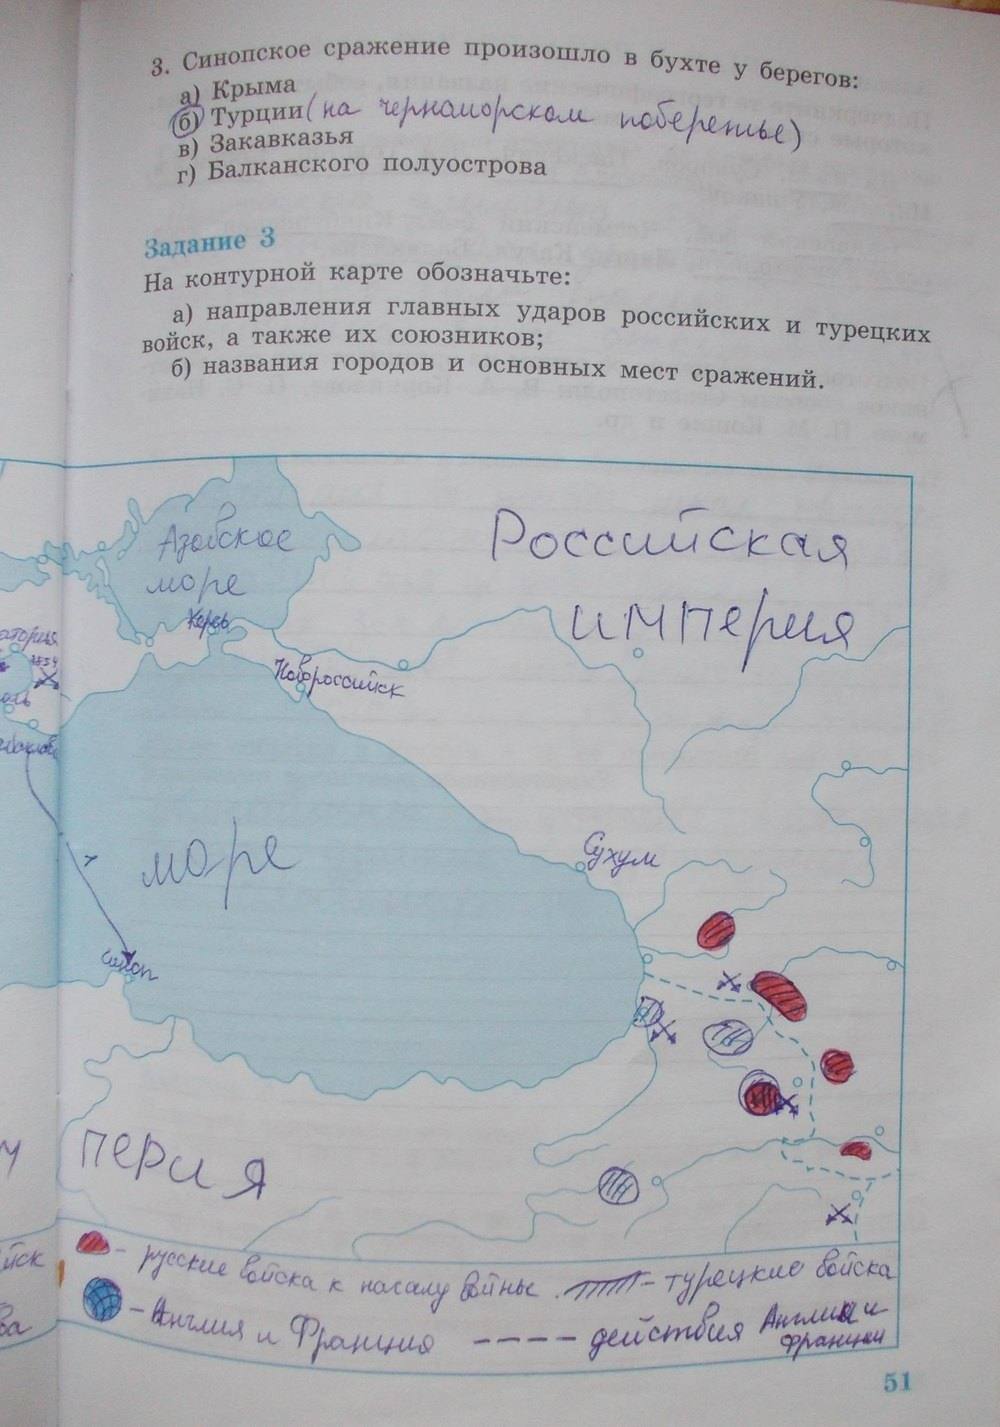 3. Синопское сражение произошло в бухте у берегов:
а) Крыма
б) Турции (на черноморском побережье)
в) Закавказья
г) Балканского полуострова
Задание 3
На контурной карте обозначьте:
а) направления главных ударов российских и турецких
войск, а также их союзников;
б) названия городов и основных мест сражений.
Азовское
море
Российская
империя
Керчь
Новороссийск
Сухум
море
Синоп
перия
- русские войска к началу войны
- турецкие войска
- Англия и Франция
---- действия Англии и
Франции
51